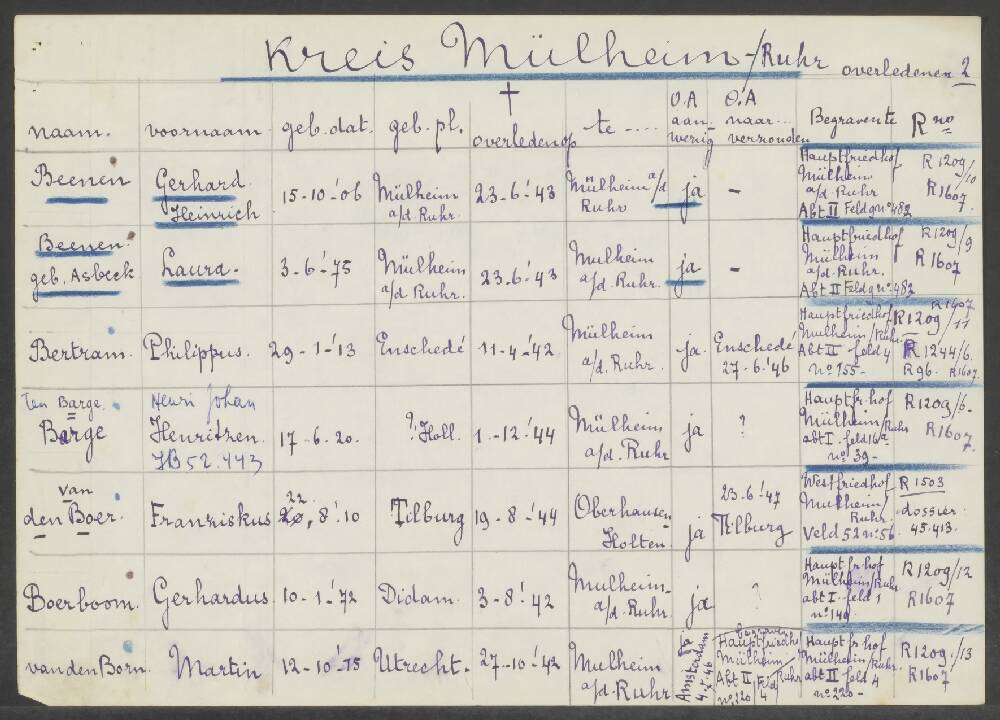 Kreis Mülheim-/Ruhr overledenen 2
naam. voornaam geb. dat. geb. pl. † overleden op te .... O.A aanwezig O.A naar... verzonden Begraven te R no
Beenen
Gerhard
Heinrich
15-10-'06
Mülheim
a/d Ruhr.
23-6-'43
Mülheim a/d
Ruhr
ja
-
Hauptfriedhof
Mülheim
a/d Ruhr
Abt II Feld gr no 482
R 1209/10
R1607.
Beenen
geb. Asbeck
Laura.
3-6-'75
Mülheim
a/d Ruhr.
23-6-'43
Mulheim
a/d. Ruhr.
ja
-
Hauptfriedhof
Mülheim
a/d Ruhr.
Abt II Feld gr no 482
R 1209/9
R 1607
Bertram.
Philippus.
29-1-'13
Enschedé
11-4-'42
Mülheim
a/d. Ruhr.
ja.
Enschedé
27-6-'46
Hauptfriedhof
Mulheim/Ruhr
Abt II feld 4
no 155-
R1607
R1209/11
R1244/6.
R96. R1607.
Ten Barge.
Barge
Henri Johan
Henritzen.
JB 52.443
17-6-20.
? Holl.
1-12-'44
Mülheim
a/d. Ruhr
ja
?
Haupt fr. hof
Mülheim/Ruhr
abt I. feld 16a
no 39-
R1209/6-
R1607.
van
den Boer.
Franziskus
22
20, 8-'10
Tilburg
19-8-'44
Oberhausen-
Holten.
ja
23-6-'47
Tilburg
Westfriedhof
Mulheim/
Ruhr.
Veld 52 no 56.
R 1503
dossier
45.413.
Boerboom.
Gerhardus
10-1-'72
Didam.
3-8-'42
Mulheim-
a/d. Ruhr
ja
?
Haupt fr hof
Mülheim/Ruhr
abt I- feld 1
no 149
R1209/12
R1607
van den Born.
Martin
12-10-'75
Utrecht.
27-10-'42
Mulheim
a/d. Ruhr
ja
Amsterdam
begraven
Hauptfriedhof
Mülheim
Abt II Feld 4 /Ruhr
no 220
Haupt fr hof
Mülheim/Ruhr.
abt II feld 4
no 220-
R1209/13
R1607